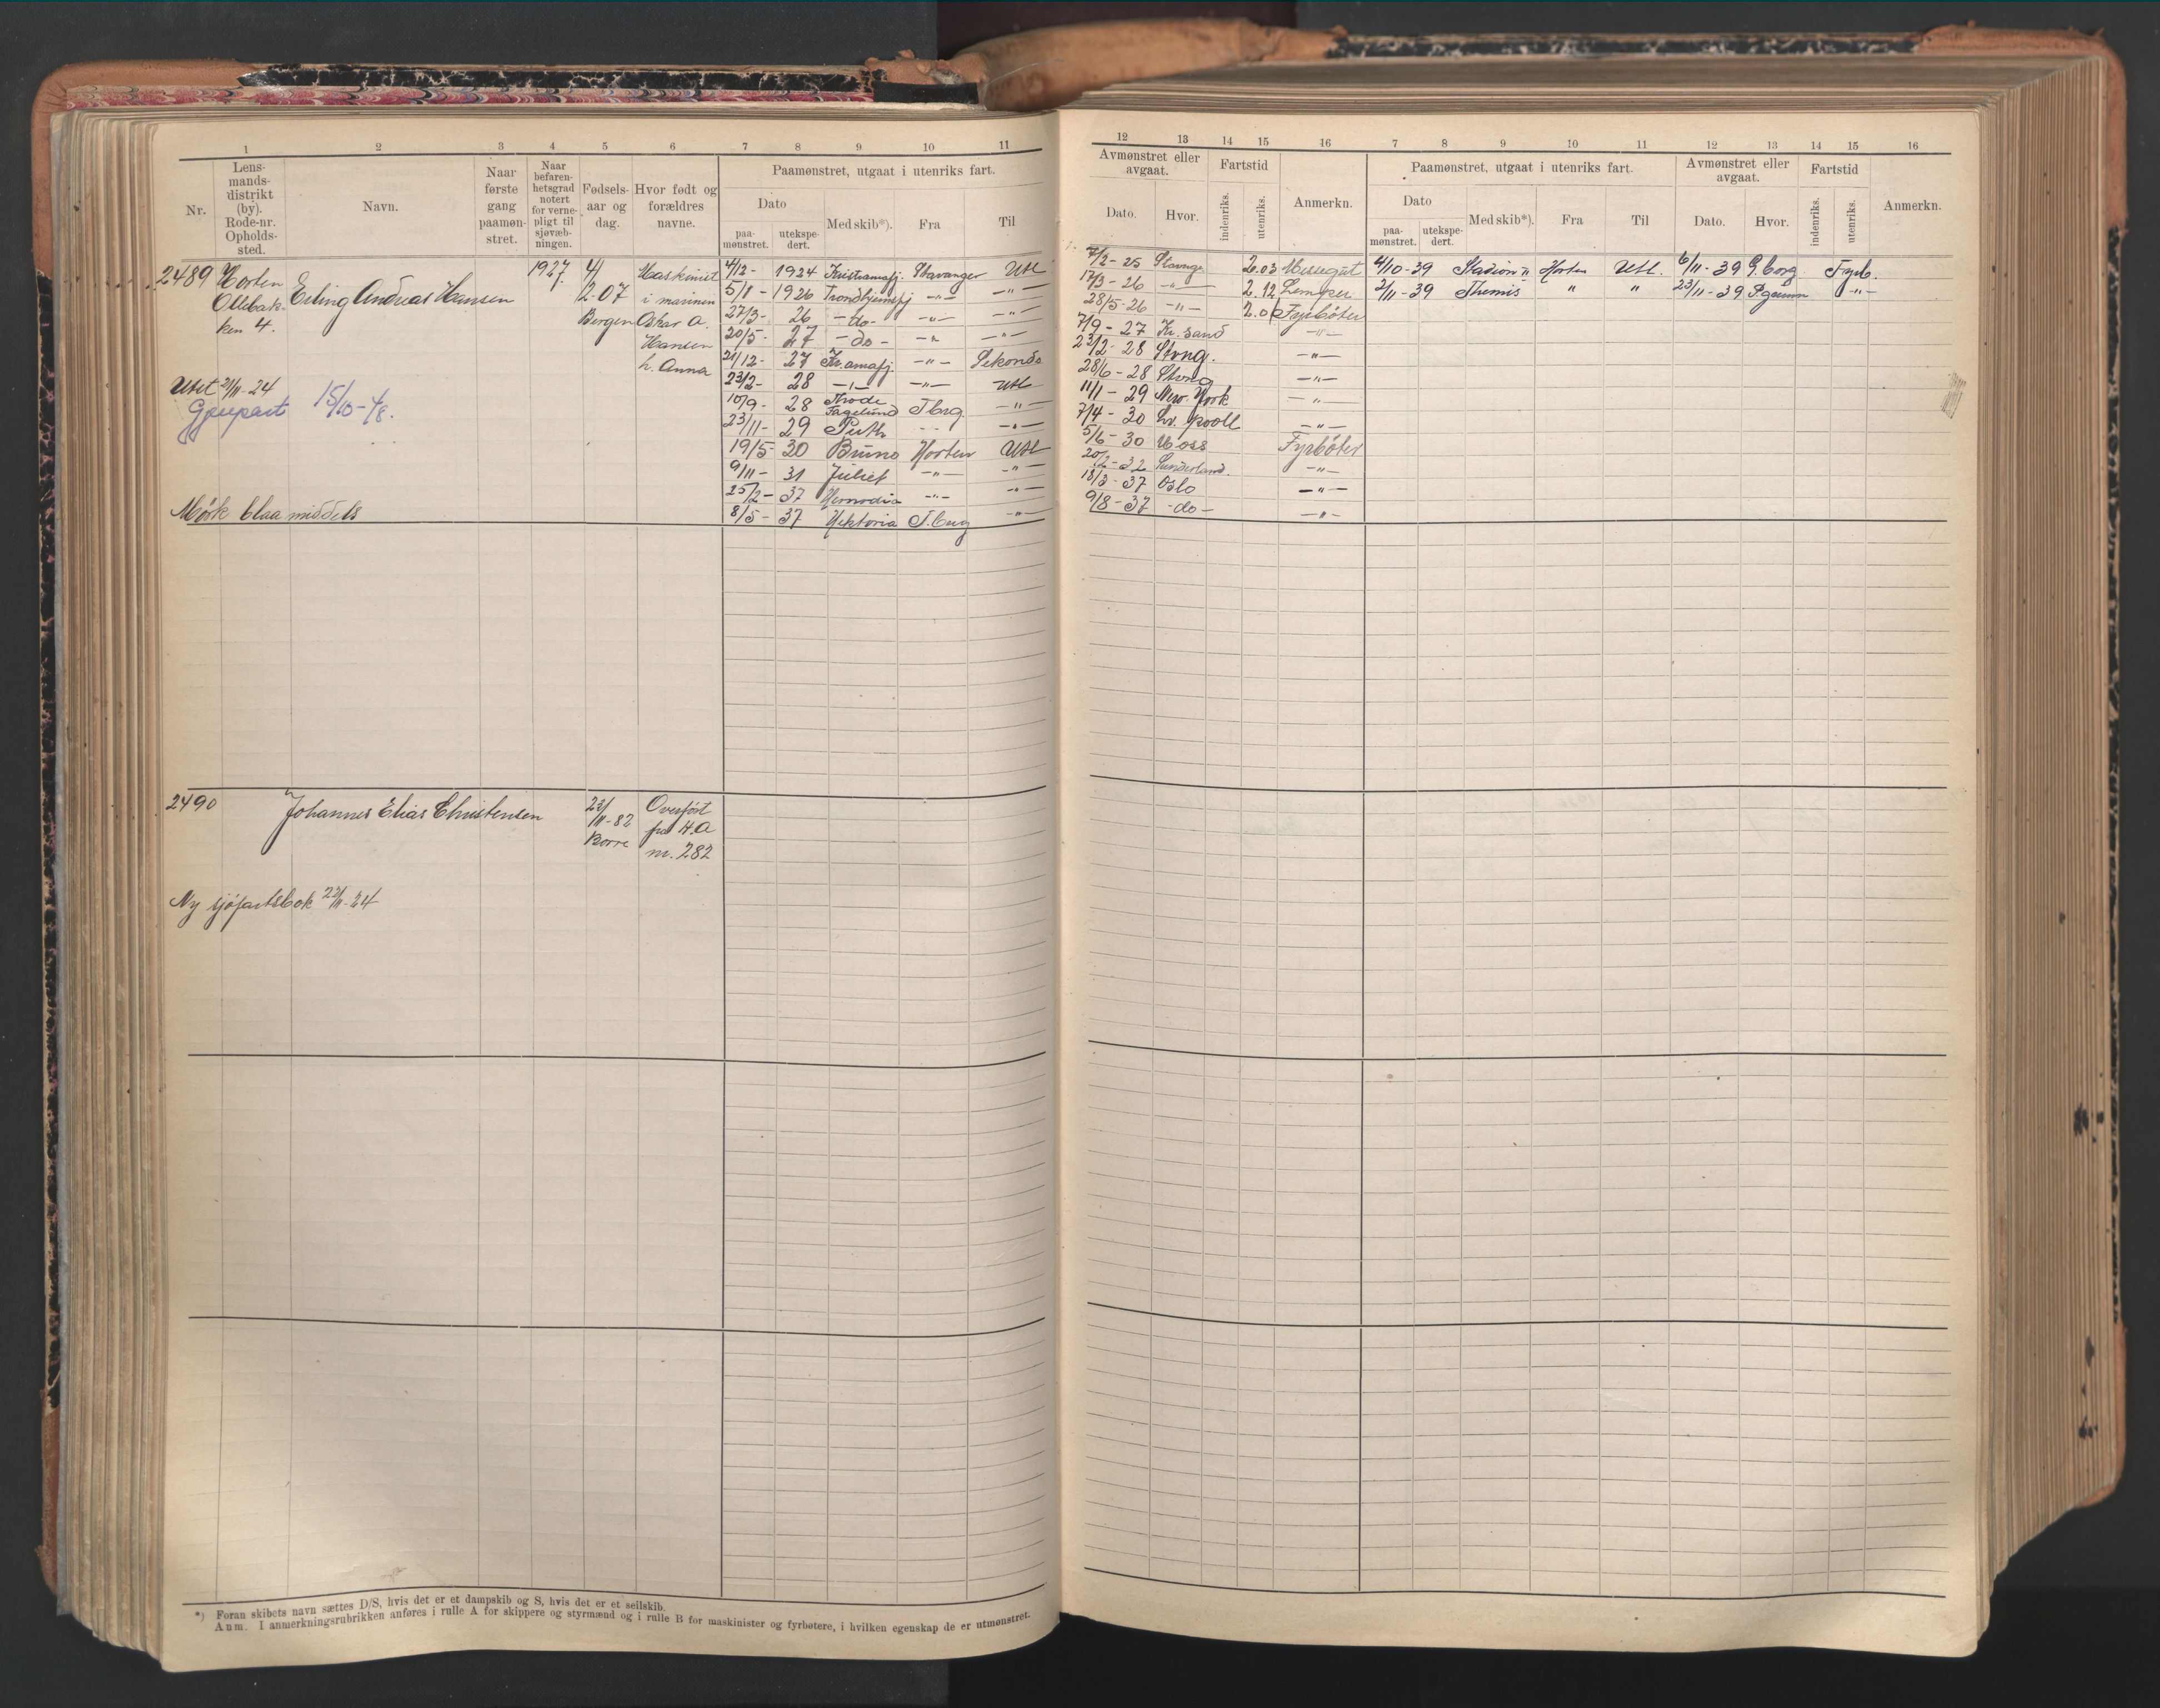 1 2 3 4 5 6 7 8 9 10 11
Nr.
Lens-
mands-
distrikt
(by).
Rode-nr.
Opholds-
sted.
Navn.
Naar
første
gang
paamøn-
stret.
Naar
befaren-
hetsgrad
notert
for verne-
pligt til
sjøvæb-
ningen.
Fødsels-
aar og
dag.
Hvor født og
forældres
navne.
Paamønstret, utgaat i utenriks fart.
Dato
paa-
mønstret.
utekspe-
dert.
Med skib*).
Fra
Til
2489 Horten
Ollebak-
ken 4.
Erling Andreas Hansen
1927.
4/
2-07
Bergen
Maskinist
i marinen
Oskar A.
Hansen
h. Anna
Utst 21/11-24
Gjenpart 15/10-48.
Mørk blaa middels
4/12- 1924 Kristianiafj. Stavanger Utl
5/8- 1926 Trondhjemsfj -"- -"-
27/3- 26 -do- -"- -"-
20/5- 27 -do- -"- -"-
21/12- 27 Kr.aniafj. -"- Sekonds
23/2- 28 -"- -"- Utl
10/9- 28 Thode Fagelund T.berg. -"-
23/11- 29 Perth -"- -"-
19/5- 30 Bruno Horten Utl
9/11- 31 Juliet -"- -"-
25/2- 37 Hermodia -"- -"-
8/5- 37 Hektoria T.berg -"-
2490
Johannes Elias Christensen
23/
11-82
Borre
Overført
fra H.A
nr. 282
Ny sjøfartsbok 22/11-24
*) Foran skibets navn sættes D/S, hvis det er et dampskib og S, hvis det er et seilskib.
Anm. I anmerkningsrubrikken anføres i rulle A for skippere og styrmænd og i rulle B for maskinister og fyrbøtere, i hvilken egenskap de er utmønstret.
12 13 14 15 16 7 8 9 10 11 12 13 14 15 16
Avmønstret eller
avgaat.
Dato. Hvor.
Fartstid
indenriks.
utenriks.
Anmerkn.
Paamønstret, utgaat i utenriks fart.
Dato
paa-
mønstret.
utekspe-
dert.
Med skib*).
Fra
Til
Avmønstret eller
avgaat.
Dato. Hvor.
Fartstid
indenriks.
utenriks.
Anmerkn.
7/2-25 Stavnge 2.03 Messegut 4/10-39 Stadion II Horten Utl. 6/11-39 G.borg Fyrb.
17/3-26 -"- 2.12 Lemper 2/11-39 Themis " " 23/11-39 P.grunn -"-
28/5-26 -"- 2.01 Fyrbøter
7/9-27 Kr.sand -"-
23/2-28 Stvng. -"-
28/6-28 Stvng -"-
11/11-29 New-York -"-
7/4-30 Liv.pooll -"-
5/6-30 Moss Fyrbøter
20/2-32 Sunderland. -"-
18/3-37 Oslo -"-
9/8-37 -do- -"-